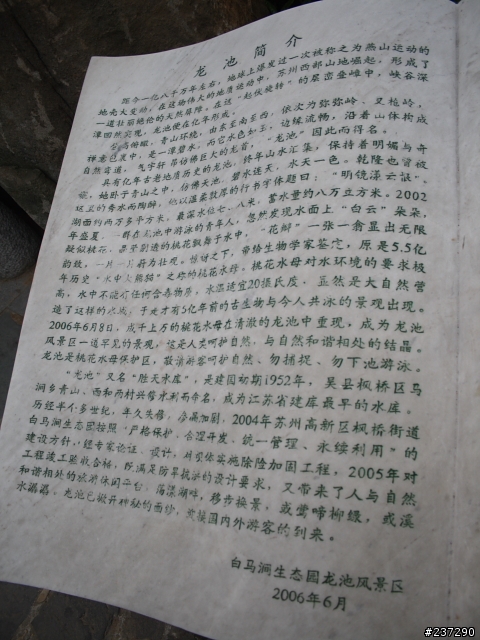 龙池简介
距今一亿八千万年左右，地球上爆发过一次被称之为燕山运动的
地壳大变动，在这场伟大的地质运动中，苏州西部山地崛起，形成了
一道壮丽绝伦的天然屏障。在这一"起伏旋转"的层峦叠嶂中，峡谷深
潭回然突现，龙池便在亿年形成。
登高俯瞰，青山环镜，由东至南至西，依次为弥弥岭、又枪岭，
禅意色发中，是一潭碧水，而它水色如玉，边缘流畅，沿着山体构成
自然弯道，气宇轩昂仿佛巨大的龙首，"龙池"因此而得名。
具有亿年古老地质历史的龙池，终年山水汇集，保持着明媚与奇
，她卧于青山之中，仿佛天池，碧水连天，水天一色。乾隆也曾被
这里的秀水而陶醉，他以温柔敦厚的行书字体题曰："明镜漾云根"。
湖面约两万多平方米，最深水位七、八米，蓄水量约八万立方米。2002
年盛夏，一群在龙池中游泳的青年人，忽然发现水面上"白云"朵朵，
疑似桃花，晶莹剔透的桃花飘舞于水中，"花瓣"一张一翕显出无限
韵致，一片一片蔚为壮观。惊讶之下，带给生物学家鉴定，原是5.5亿
年历史"水中大熊猫"之称的桃花水母。桃花水母对水环境的要求极
高，水中不能有任何含毒物质，水温适宜20摄氏度，显然是大自然营
造了这样的水域，于是才有5亿年前的古生物与今人共泳的景观出现。
2006年6月8日，成千上万的桃花水母在清澈的龙池中重现，成为龙池
风景区一道罕见的景观，该是人类呵护自然、与自然和谐相处的结晶。
龙池是桃花水母保护区，敬请游客呵护自然、勿捕捉、勿下池游泳。
"龙池"又名"胜天水库"，是建国初期1952年，吴县枫桥区马
涧乡青山、西和两村兴修水利而命名，成为江苏省建库最早的水库。
历经半个多世纪，年久失修，渗漏加剧，2004年苏州高新区枫桥街道
白马涧生态园按照"严格保护、合理开发、统一管理、永续利用"的
建设方针，经专家论证、设计，对坝体实施除险加固工程，2005年对
工程竣工验收合格，既满足防旱抗涝的设计要求，又带来了人与自然
和谐相处的旅游休闲平台，荡漾湖畔，移步换景，或莺啼柳绿，或溪
水潺潺。龙池已揭开神秘的面纱，欢接国内外游客的到来。
白马涧生态园龙池风景区
2006年6月
#237290